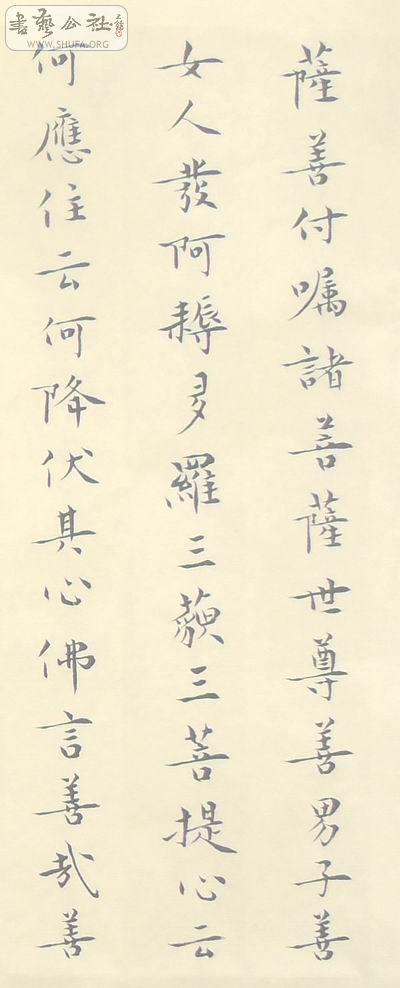 薩善付嘱諸菩薩世尊善男子善
女人發阿耨多羅三藐三菩提心云
何應住云何降伏其心佛言善哉善
書藝公社
WWW.SHUFA.ORG